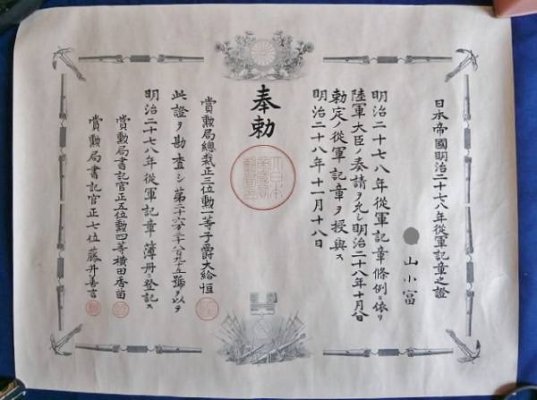 日本帝國明治二十七八年從軍記章之證
山小富
明治二十七八年從軍記章條例ニ依リ
陸軍大臣ノ奏請ヲ允シ明治二十八年十月九日
勅定ノ從軍記章ヲ授與ス
明治二十八年十一月十八日
奉勅
賞勲局總裁正三位勲一等子爵大給恒
此證ヲ勘査シ第號ヲ以テ
明治二十七八年從軍記章簿册ニ登記ス
賞勲局書記官正五位勲四等横田香苗
賞勲局書記官正七位藤井善言